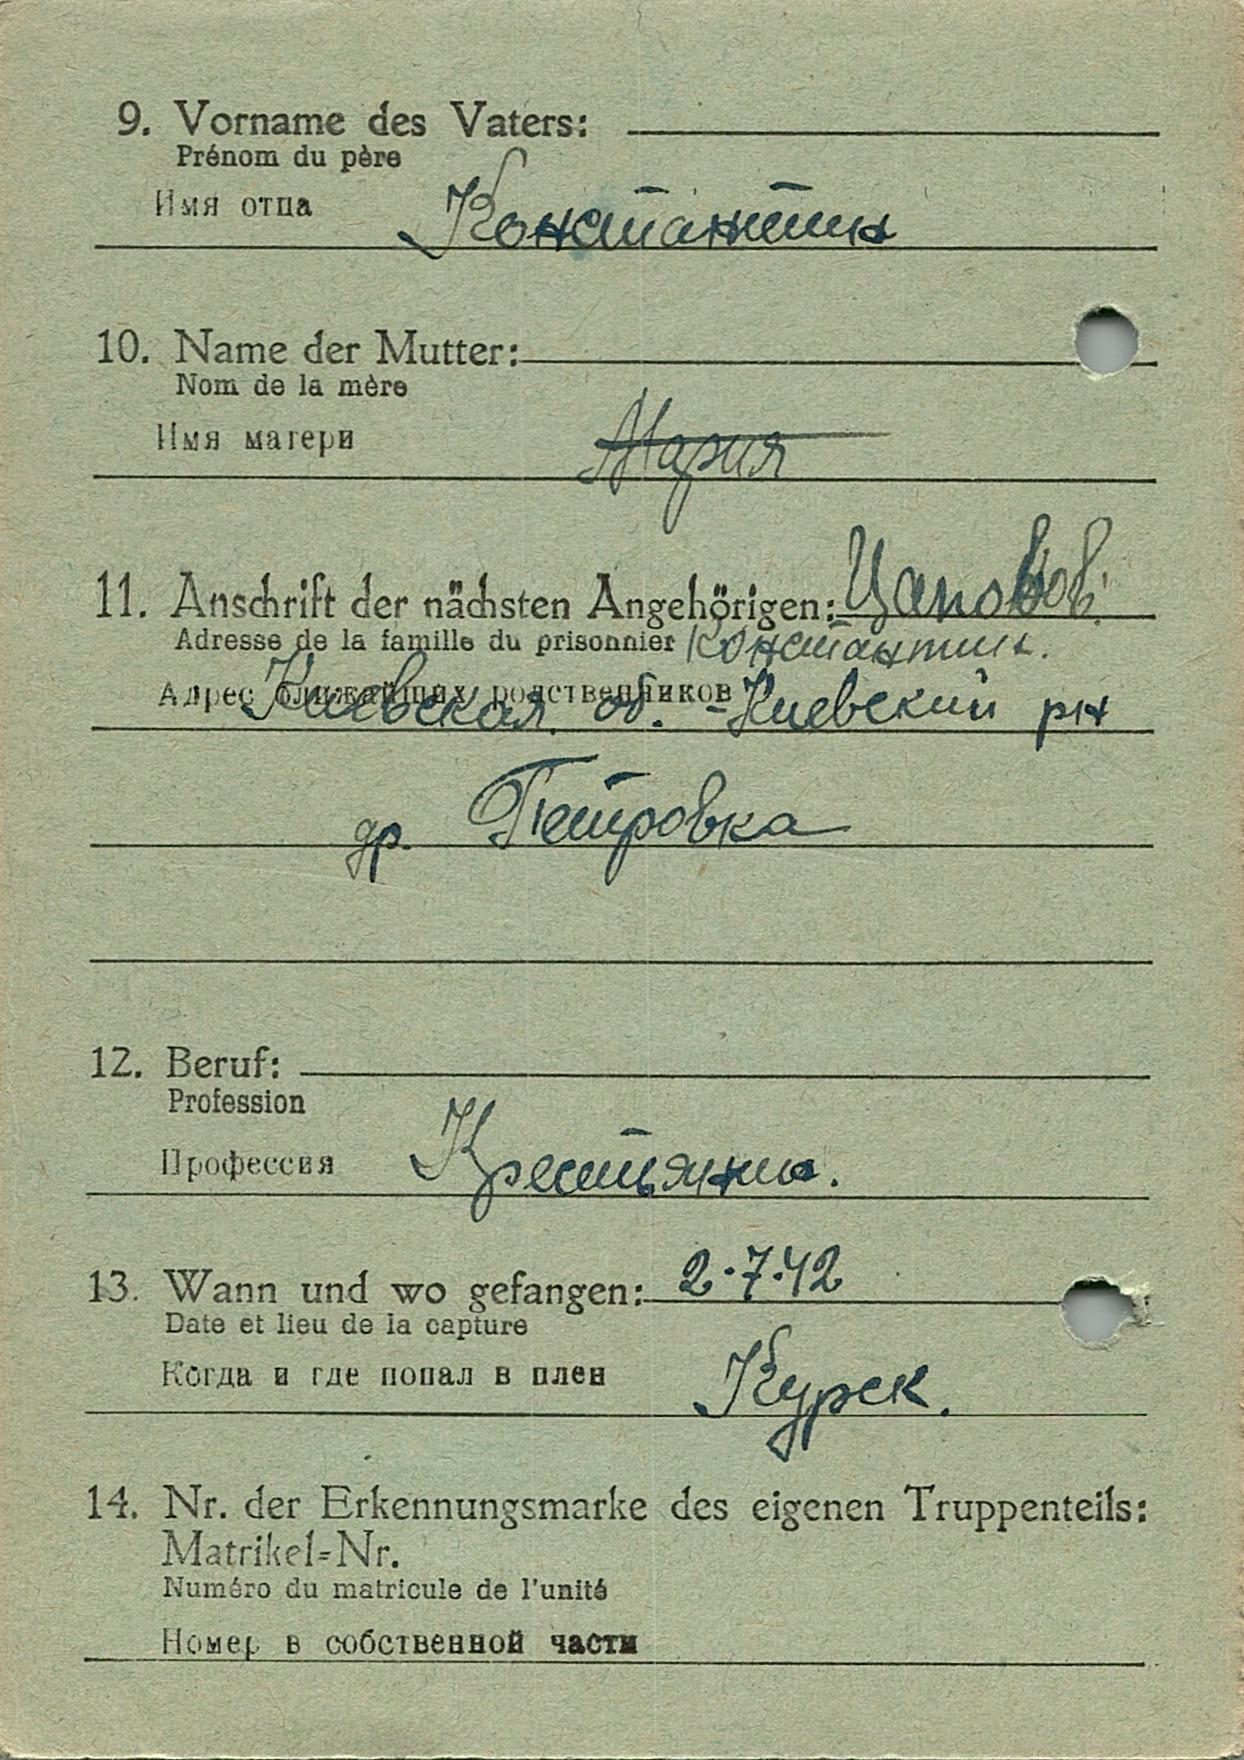 9. Vorname des Vaters:
Prénom du père
Имя отца Константин
10. Name der Mutter:
Nom de la mère
Имя матери Мария
11. Anschrift der nächsten Angehörigen:
Adresse de la famille du prisonnier Константин.
Адрес ближайших родственников
Киевская об. - Киевский рн
др. Петровка
12. Beruf:
Profession
Профессия Крестьянин.
13. Wann und wo gefangen: 2.7.42
Date et lieu de la capture
Когда и где попал в плен Курск.
14. Nr. der Erkennungsmarke des eigenen Truppenteils:
Matrikel=Nr.
Numéro du matricule de l'unité
Номер в собственной части